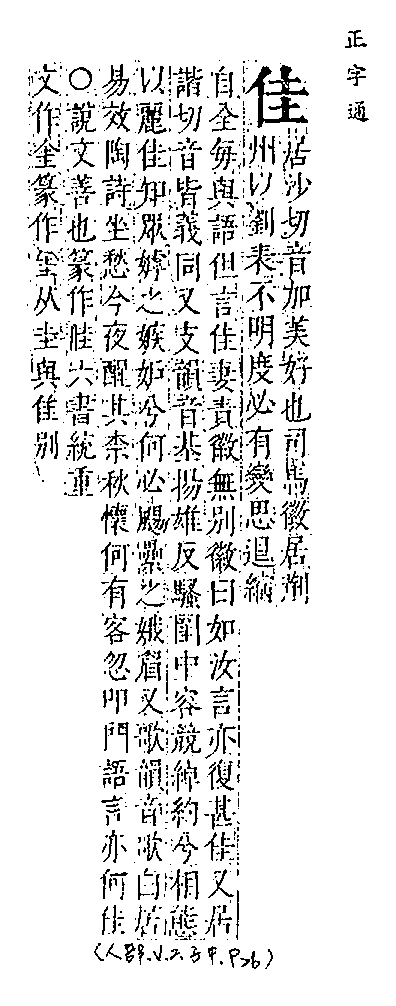 正字通
佳
居沙切音加美好也司馬徽居荆
州以劉表不明度必有變思退縮
自全每與語但言佳妻責徽無別徽曰如汝言亦復甚佳又居
諧切音皆義同又支韻音基揚雄反騷閨中容競綽約兮相態
以麗佳知眾嫭之嫉妒兮何必颺纍之娥眉又歌韻音歌白居
易效陶詩坐愁今夜醒其柰秋懷何有客忽叩門語言亦何佳
○說文善也篆作佳六書統重
文作奎篆作𡉚从圭與隹別
(人部.V.2.子中.P26)